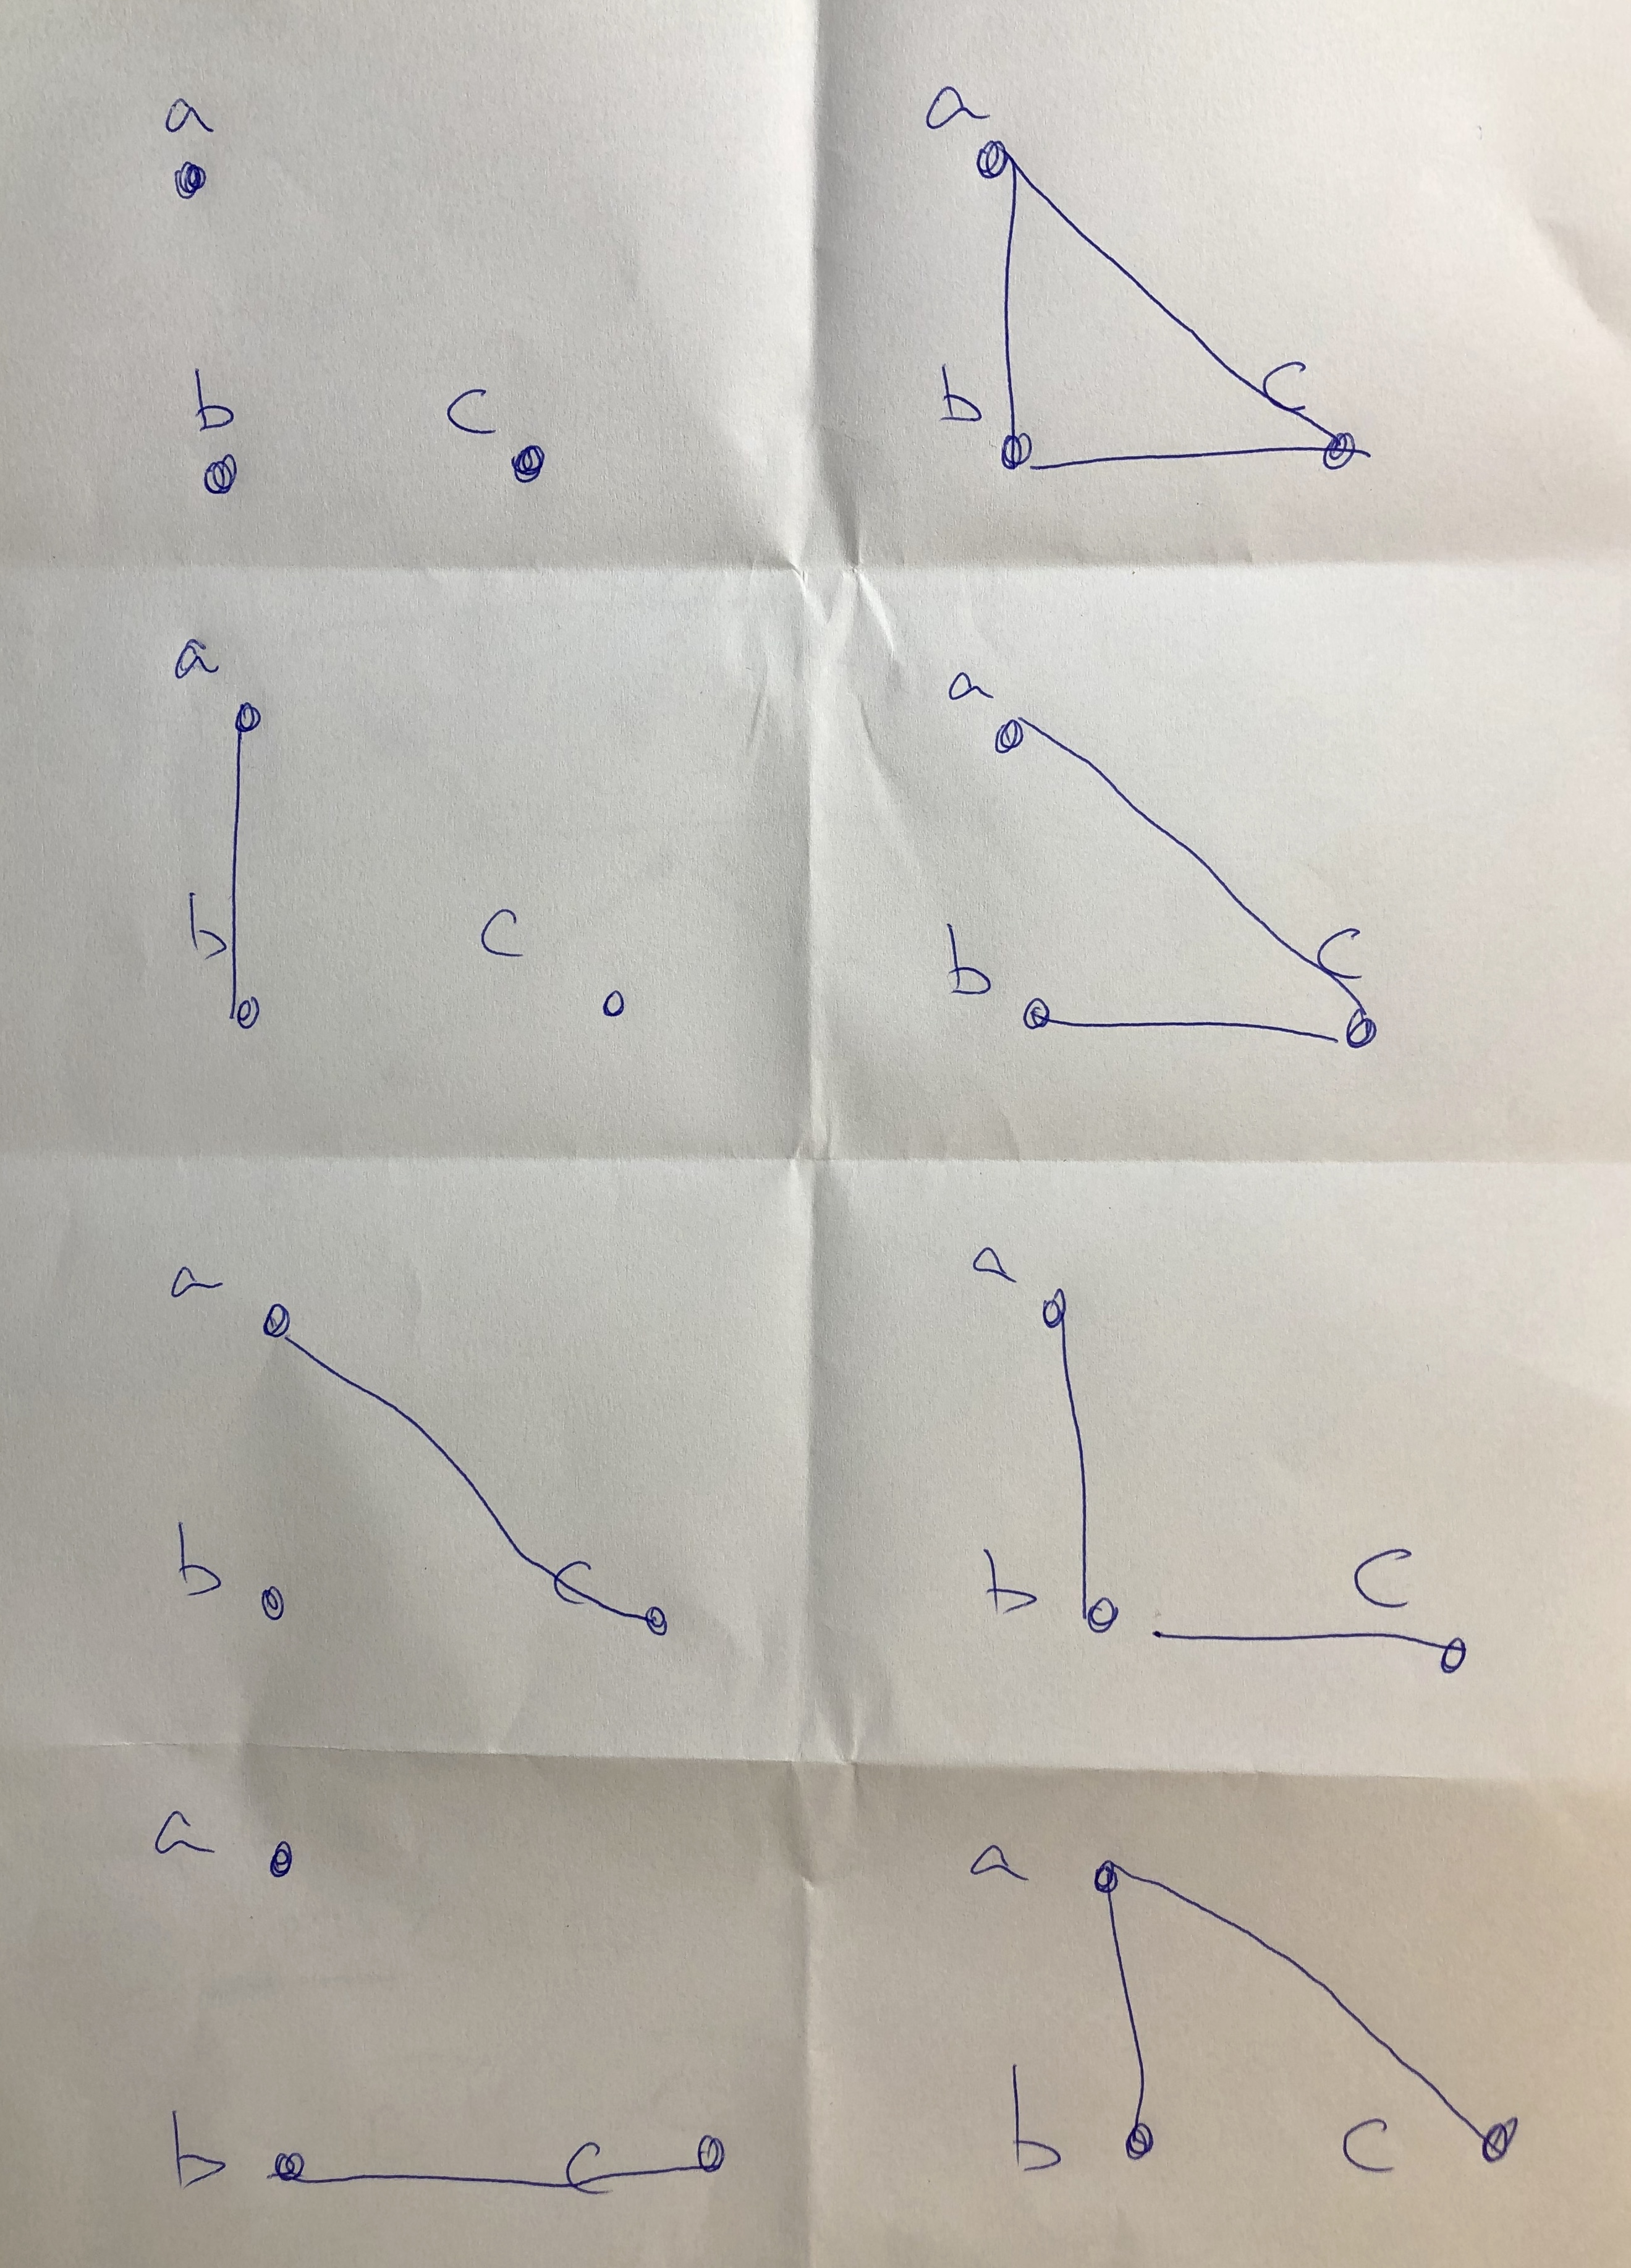 a
b c
a
b c
a
b c
a
b c
a
b c
a
b c
a
b c
a
b c